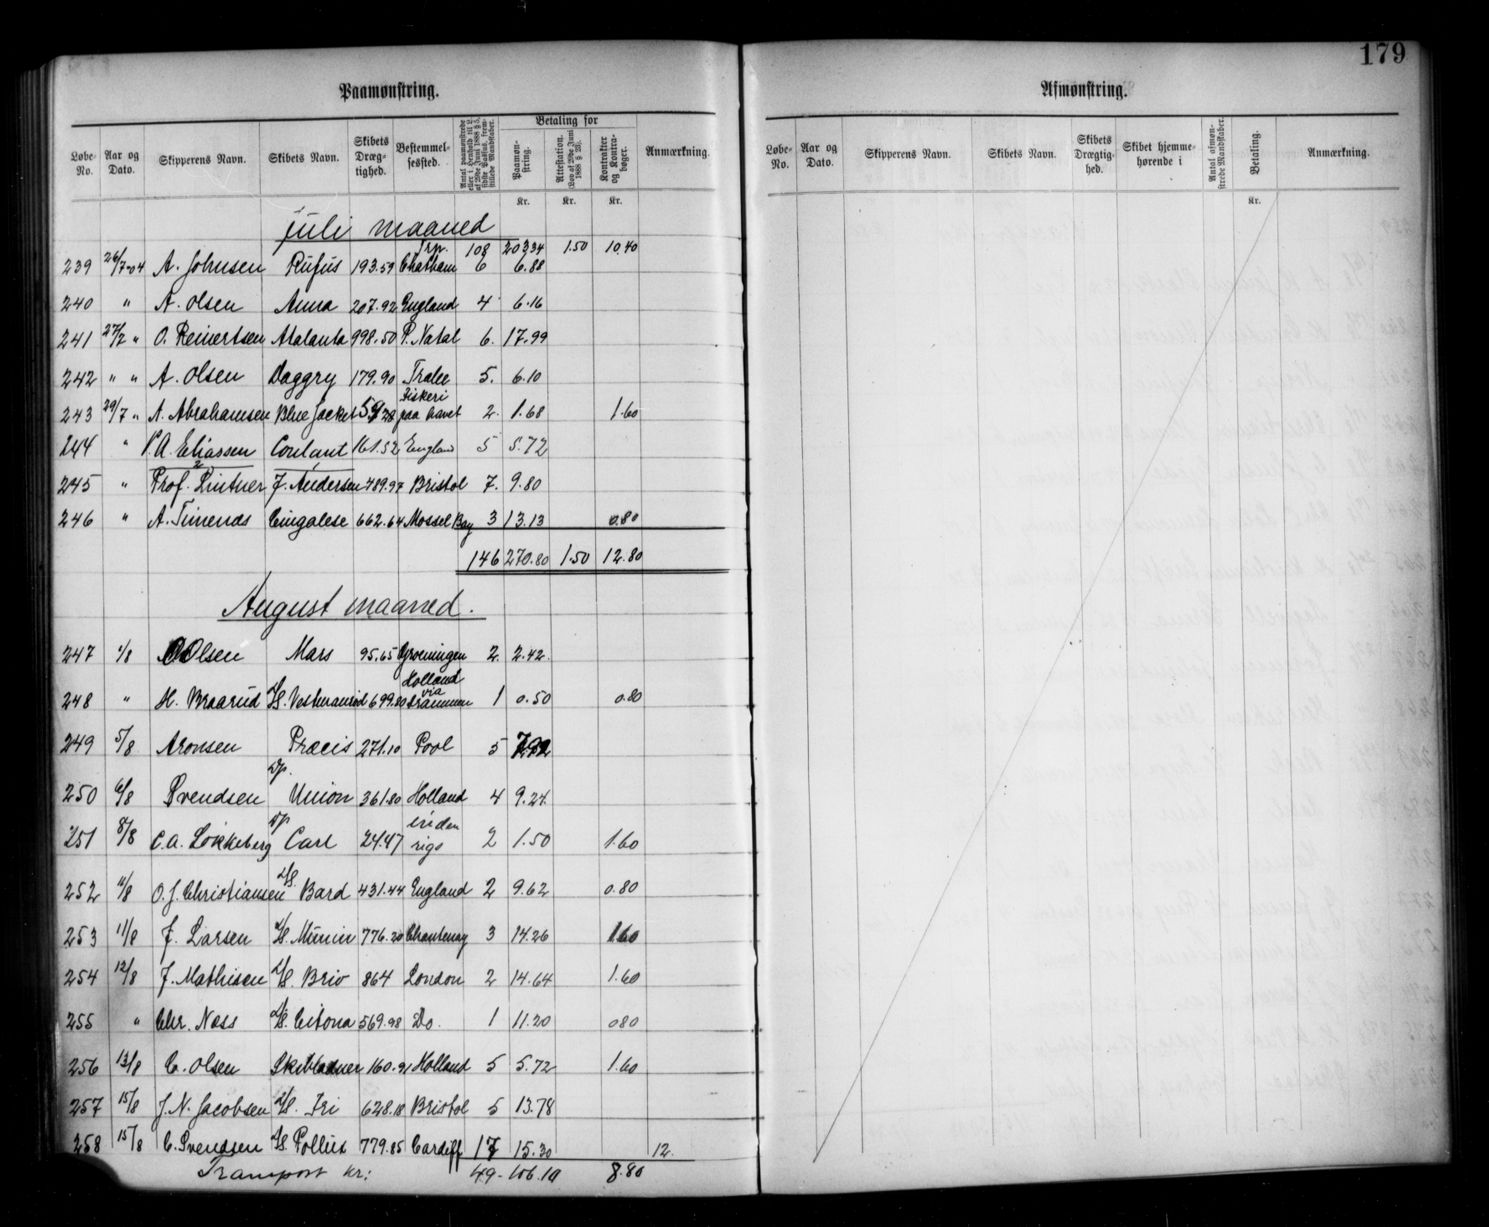 179
Paamønstring.
Løbe-No. Aar og Dato. Skipperens Navn. Skibets Navn. Skibets Dræg-tighed. Bestemmel-sessted. Betaling for Paamøn-string. Attestation. (Lov af 29de Juni 1888 § 25). Kontrakter og Kontra-bøger. Anmærkning.
Kr. Kr. Kr.
juli maaned
Trp. 108 203.34 1.50 10.40
239 26/7-04 A. Johnsen Rufus 193.59 Chatham 6 6.88
240 " A. Olsen Anna 207.92 England 4 6.16
241 27/7 " O. Reinertsen Atalanta 998.50 P. Natal 6. 17.99
242 " " A. Olsen Daggry 179.90 Tralee 5. 6.10
243 29/7 " A. Abrahamsen Blue Jacket 59.28 Fiskeri paa havet 2. 1.68 1.60
244 " P. A. Eliassen Coulant 161.52 England 5 5.72
245 " Prof. Lintner J. Andersen 789.97 Bristol 7. 9.80
246 " A. Timenæs Cingalese 662.64 Mossel Bay 3 13.13 0.80
146 270.80 1.50 12.80
August maaned.
247 1/8 O Olsen Mars 95.65 Groeningen 2. 2.42.
248 " H. Braarud D/S. Vestmanrød 699.80 Holland via Drammen 1 0.50 0.80
249 5/8 Aronsen Præcis 271.10 Pool 5
250 6/8 Svendsen Dp. Union 361.80 Holland 4 9.24.
251 8/8 C. A. Løkkeberg Dp Carl 24.47 inden rigs 2 1.50 1.60
252 11/8 O. J. Christiansen D/S. Bard 431.44 England 2 9.62 0.80
253 11/8 J. Larsen D/S. Munin 776.20 Chantenay 3 14.26 1.60
254 12/8 J. Mathisen D/S. Briv 864 London 2 14.64 1.60
255 " Chr. Næss D/S. Citona 569.98 Do. 1 11.20 080
256 13/8 C. Olsen Skibladner 160.91 Holland 5 5.72 1.60
257 15/8 J. N. Jacobsen D/S. Tri 628.18 Bristol 5 13.78
258 15/8 C. Svendsen D/S Pollux 779.85 Cardiff 17 15.30 12.
Transport kr: 49 - 106.10 8.80
Afmønstring.
Løbe-No. Aar og Dato. Skipperens Navn. Skibets Navn. Skibets Drægtig-hed. Skibet hjemme-hørende i Antal afmøn-strede Mandskaber. Betaling. Anmærkning.
Kr.